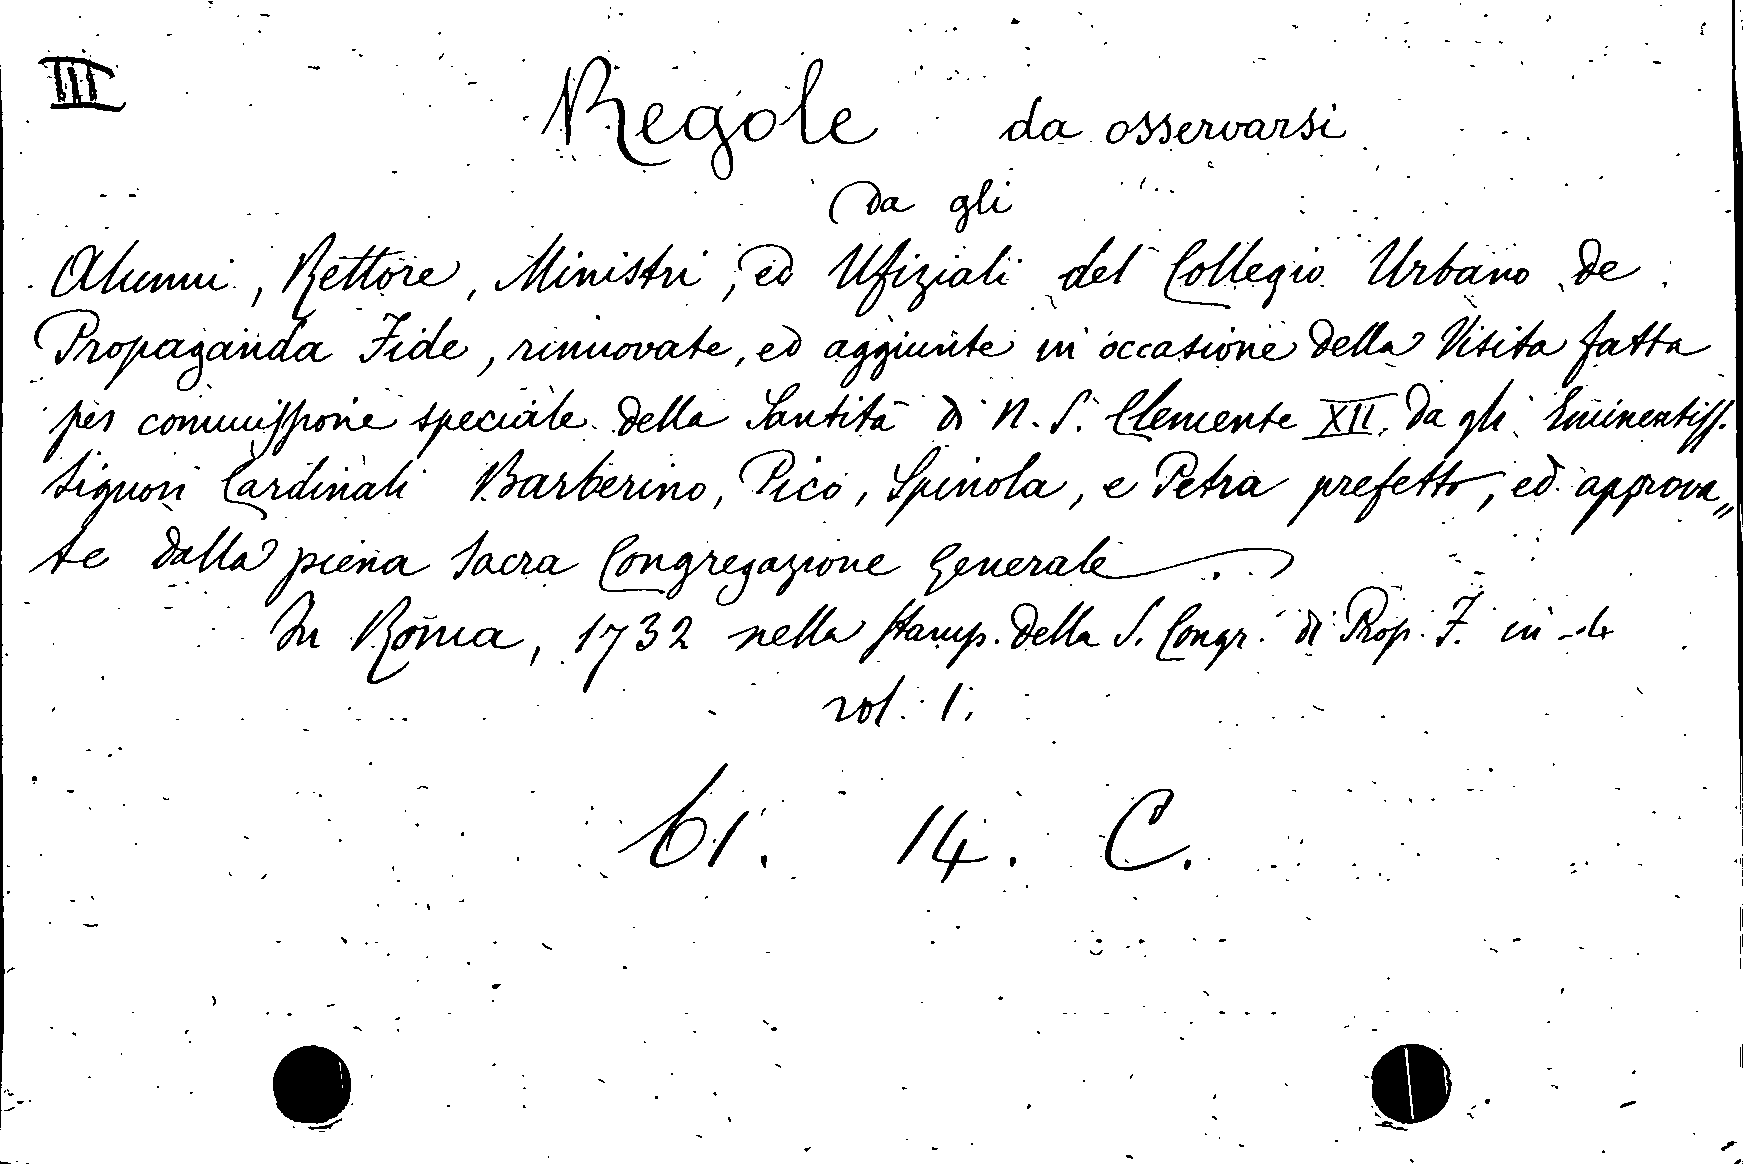 III
Regole da osservarsi
da gli
Alunni, Rettore, Ministri, ed Ufiziali del Collegio Urbano de
Propaganda Fide, rinnovate, ed aggiunte in occasione della Visita fatta
per commissione speciale della Santità di N. S. Clemente XII. da gli Eminentiss.
Signori Cardinali Barberino, Pico, Spinola, e Petra prefetto, ed approva„
te dalla piena Sacra Congregazione Generale
In Roma, 1732 nella Stamp. della S. Congr. di Prop. F. in-4
vol. 1.
61. 14. C.